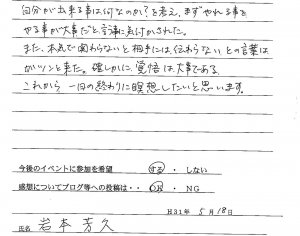 自分が出来る事は何なのか?を考え、まずやれる事を
やる事が大事だと言う事に気付かされた。
また、本気で関わらないと相手には伝わらないとの言葉は
ガツンと来た。確しかに、覚悟は大事である。
これから一日の終わりに瞑想したいと思います。
今後のイベントに参加を希望 する ・ しない
感想についてブログ等への投稿は・・ OK ・ NG
H31年 5月18日
氏名 岩本芳久